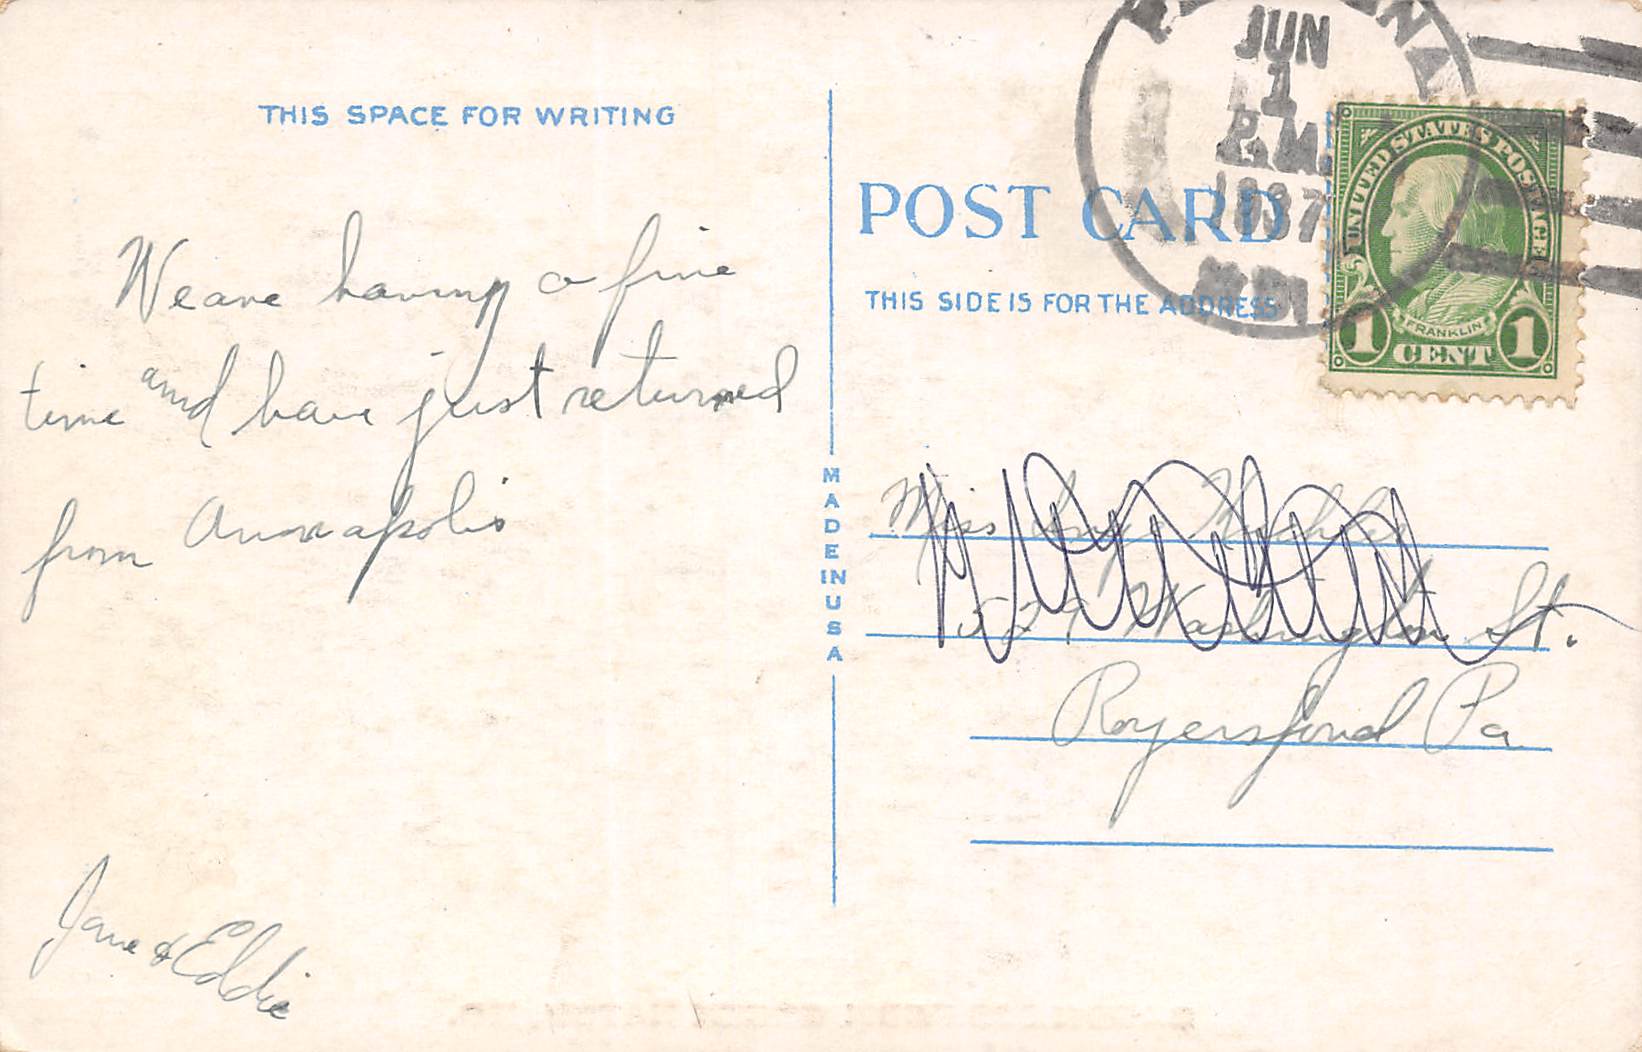 THIS SPACE FOR WRITING
We are having a fine
time and have just returned
from Annapolis
Jane & Eddie
MADE IN USA
POST CARD
THIS SIDE IS FOR THE ADDRESS
JUN
1
P.M.
1937
UNITED STATES POSTAGE
FRANKLIN
1 CENT 1
Miss
Washington St.
Royersford Pa